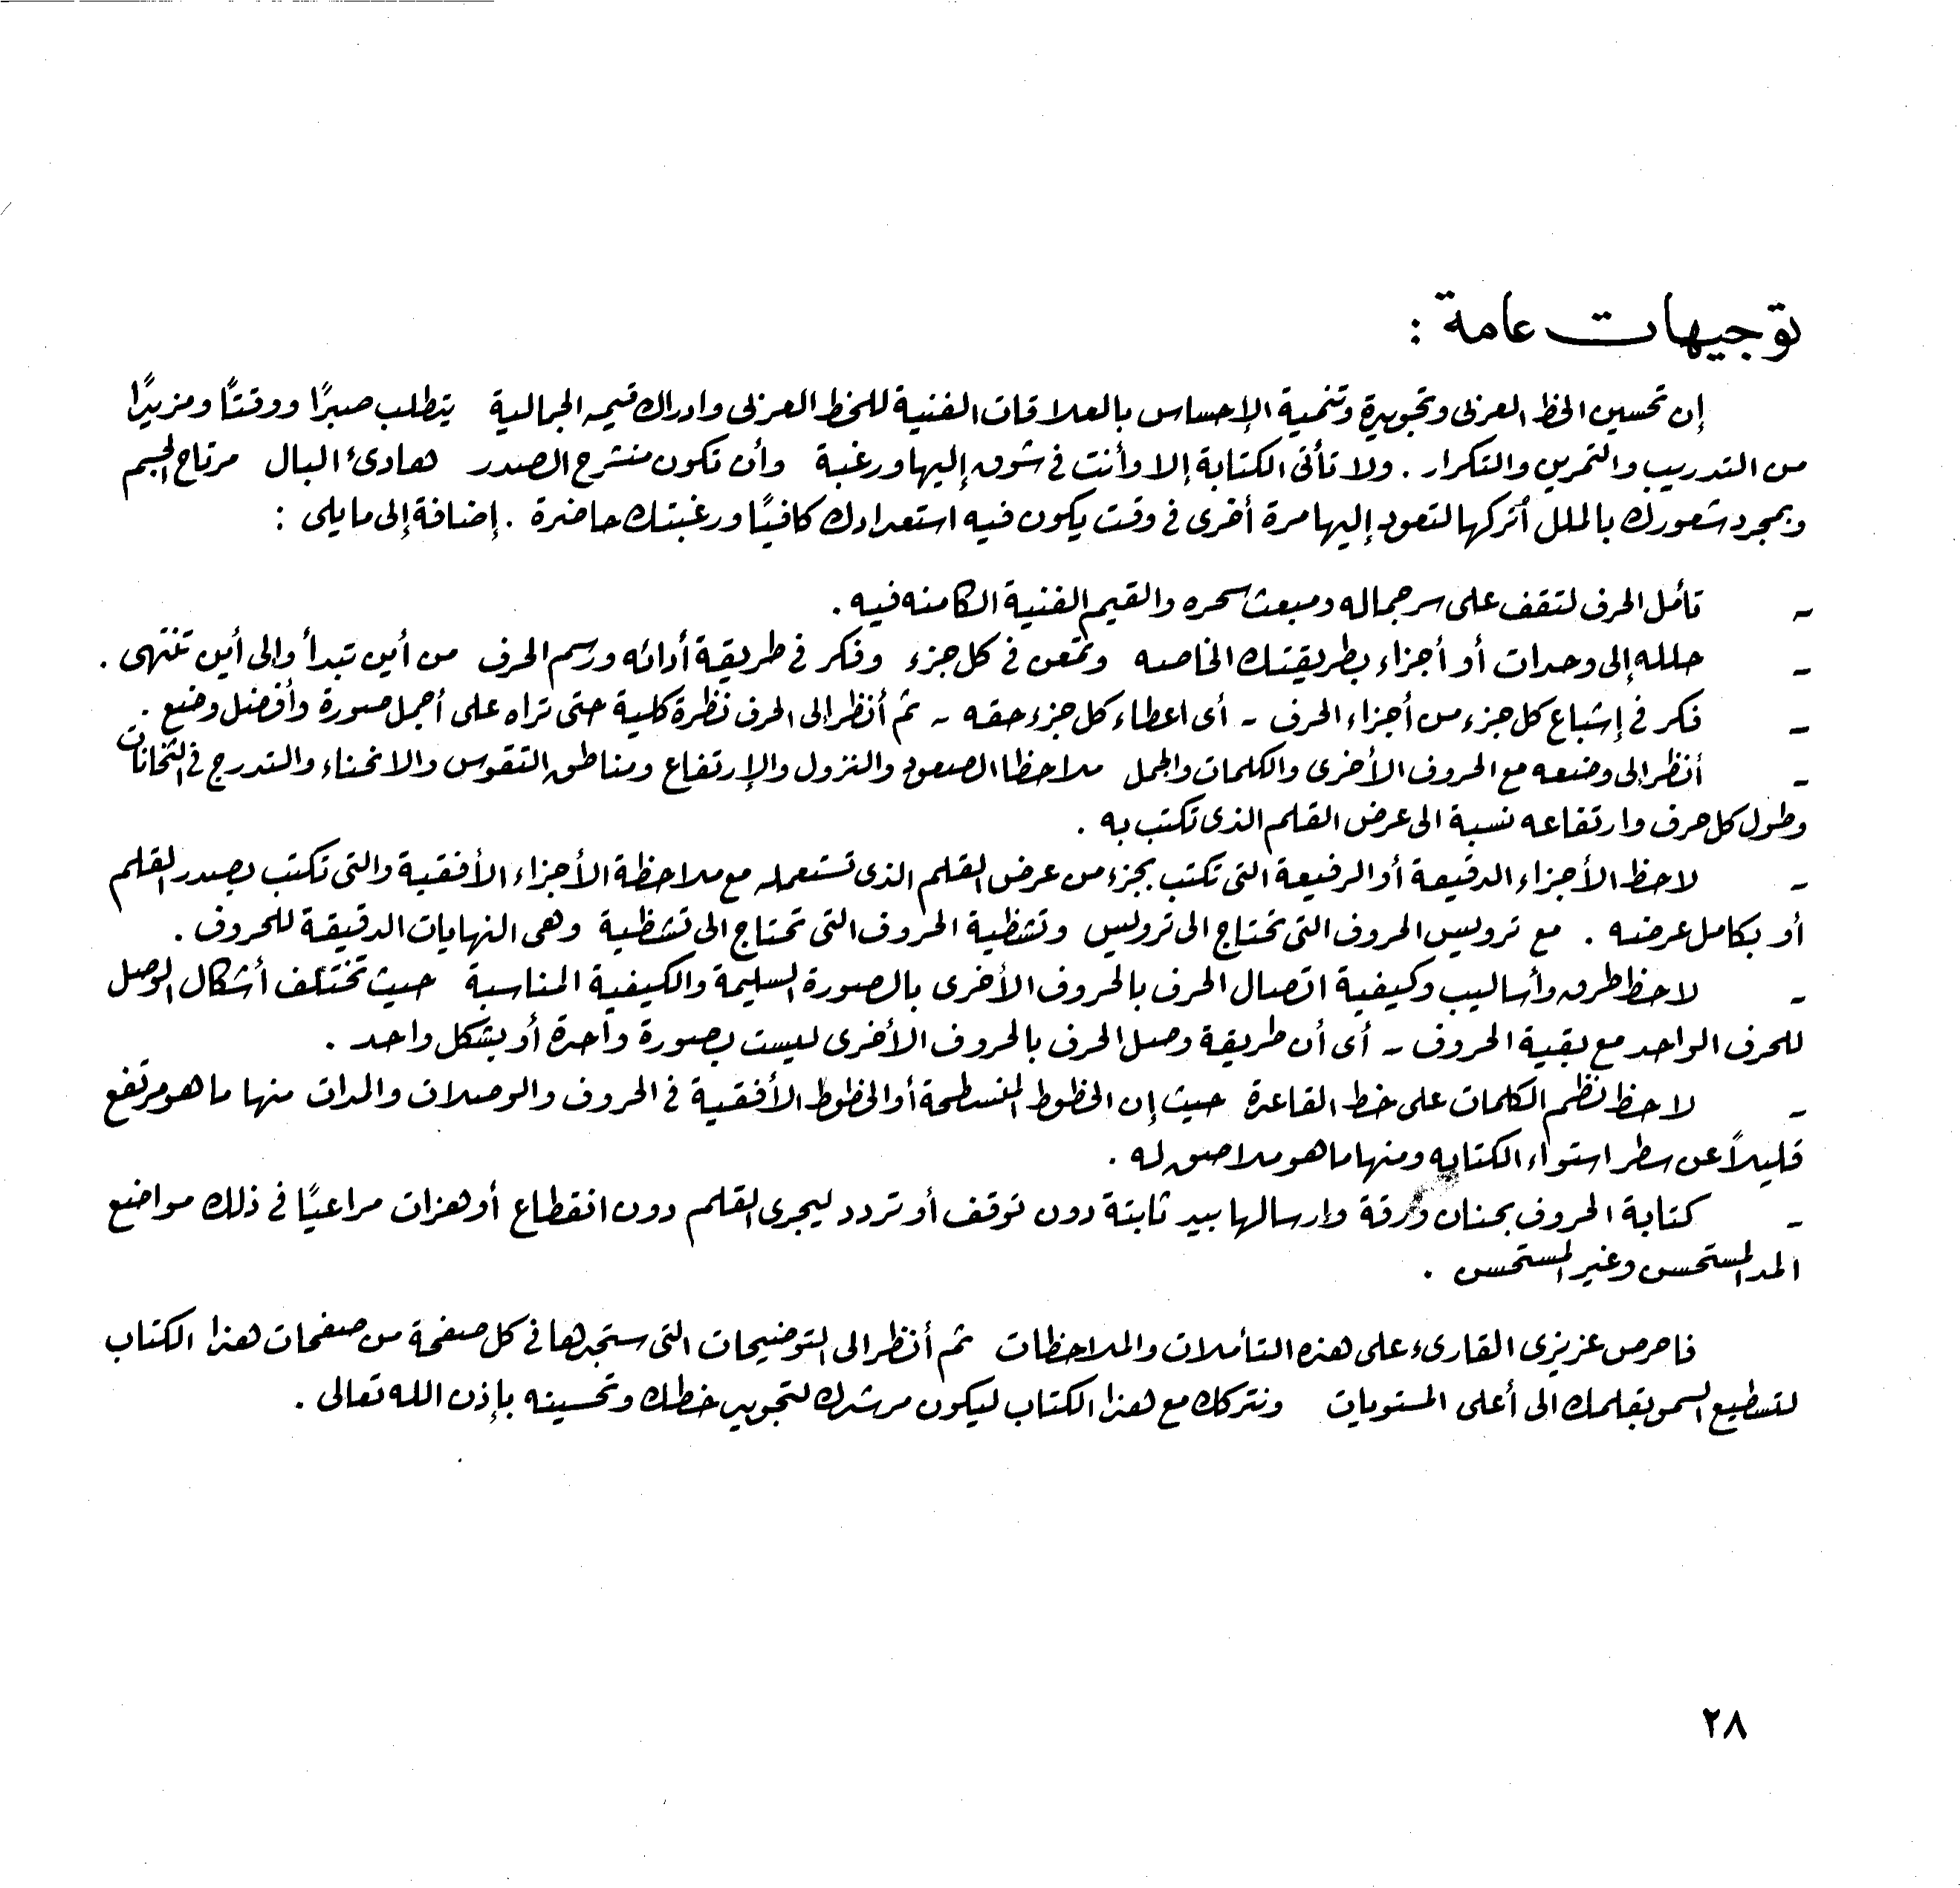 توجيهات عامة :
إن تحسين الخط العربى وتجويده وتنمية الإحساس بالعلاقات الفنية للخط العربى وادراك قيمه الجمالية يتطلب صبرًا ووقتًا ومزيدًا
من التدريب والتمرين والتكرار . ولا تأتى الكتابة إلا وأنت فى شوق إليها ورغبة وأن تكون منشرح الصدر هادئ البال مرتاح الجسم
وبمجرد شعورك بالملل أتركها لتعود إليها مرة أخرى فى وقت يكون فيه استعدادك كافيًا ورغبتك حاضرة . إضافة إلى ما يلى :
- تأمل الحرف لتقف على سر جماله ومبعث سحره والقيم الفنية الكامنه فيه .
- حلله إلى وحدات أو أجزاء بطريقتك الخاصه وتمعن فى كل جزء وفكر فى طريقة أدائه ورسم الحرف من أين تبدأ والى أين تنتهى .
- فكر فى إشباع كل جزء من أجزاء الحرف - أى اعطاء كل جزء حقه - ثم أنظر الى الحرف نظرة كلية حتى تراه على أجمل صورة وأفضل وضع .
- أنظر الى وضعه مع الحروف الأخرى والكلمات والجمل ملاحظا الصعود والنزول والإرتفاع ومناطق التقوس والانحناء والتدرج فى الثخانات
وطول كل حرف وارتفاعه نسبة الى عرض القلم الذى تكتب به .
- لاحظ الأجزاء الدقيقة أو الرفيعة التى تكتب بجزء من عرض القلم الذى تستعمله مع ملاحظة الأجزاء الأفقية والتى تكتب بصدر القلم
أو بكامل عرضه . مع ترويس الحروف التى تحتاج الى ترويس وتشظية الحروف التى تحتاج الى تشظية وهى النهايات الدقيقة للحروف .
- لاحظ طرق وأساليب وكيفية اتصال الحرف بالحروف الأخرى بالصورة السليمة والكيفية المناسبة حيث تختلف أشكال الوصل
للحرف الواحد مع بقية الحروف - أى أن طريقة وصل الحرف بالحروف الأخرى ليست بصورة واحدة أو بشكل واحد .
- لاحظ نظم الكلمات على خط القاعدة حيث إن الخطوط المنسطحة أو الخطوط الأفقية فى الحروف والوصلات والمدات منها ما هو مرتفع
قليلاً عن سطر استواء الكتابه ومنها ما هو ملاصق له .
- كتابة الحروف بحنان ورقة وإرسالها بيد ثابتة دون توقف أو تردد ليجرى القلم دون انقطاع أو هزات مراعيًا فى ذلك مواضع
المد المستحسن وغير المستحسن .
فاحرص عزيزى القارىء على هذه التأملات والملاحظات ثم أنظر الى التوضيحات التى ستجدها فى كل صفحة من صفحات هذا الكتاب
لتسطيع السمو بقلمك الى أعلى المستويات ونتركك مع هذا الكتاب ليكون مرشدك لتجويد خطك وتحسينه بإذن الله تعالى .
٢٨